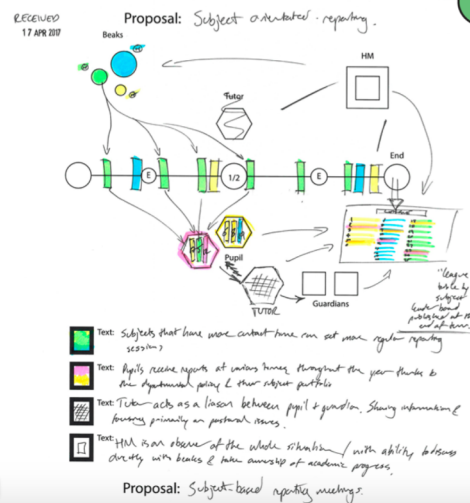 RECEIVED
17 APR 2017
Proposal: Subject orientated reporting.
Beaks
HM
Tutor
E
1/2
E
End
Pupil
TUTOR
Guardians
"league
table by
subject
leader board
published at
end of term.
Text: Subjects that have more contact time can set more regular reporting
sessions
Text: Pupils receive reports at various times throughout the year thanks to
the departmental policy & their subject portfolio
Text: Tutor acts as a liason between pupil & guardian. Sharing information &
focusing primarily on pastoral issues.
Text: HM is an observer of the whole situation / with ability to discuss
directly with beaks & take ownership of academic progress.
Proposal: Subject based reporting meetings.